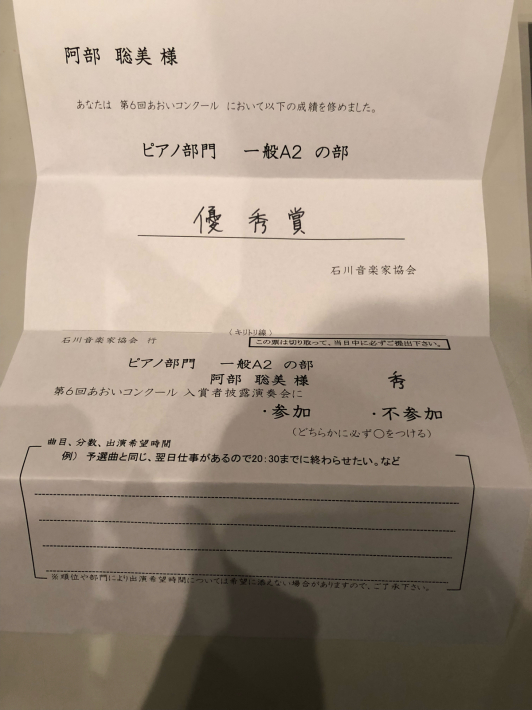 阿部 聡美 様
あなたは 第6回あおいコンクール において以下の成績を修めました。
ピアノ部門 一般A2 の部
優秀賞
石川音楽家協会
(キリトリ線)
石川音楽家協会 行
この票は切り取って、当日中に必ずご提出下さい。
ピアノ部門 一般A2 の部
阿部 聡美 様 秀
第6回あおいコンクール 入賞者披露演奏会に
・参加 ・不参加
(どちらかに必ず○をつける)
曲目、分数、出演希望時間
例) 予選曲と同じ、翌日仕事があるので20:30までに終わらせたい。など
※順位や部門により出演希望時間については希望に添えない場合がありますので、ご了承下さい。